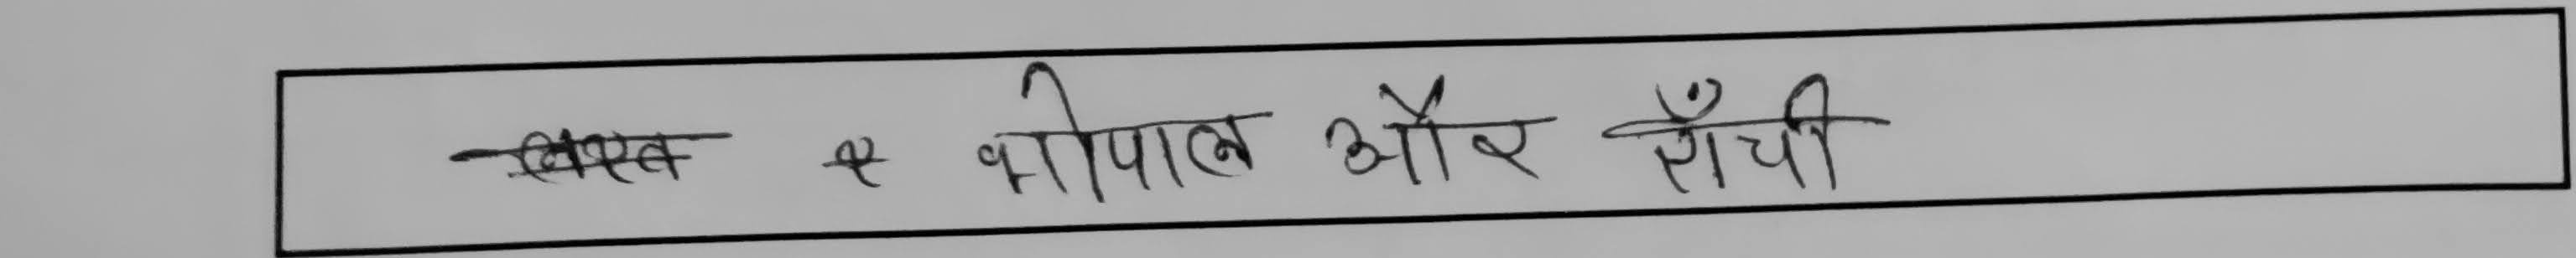 भोपाल और राँची